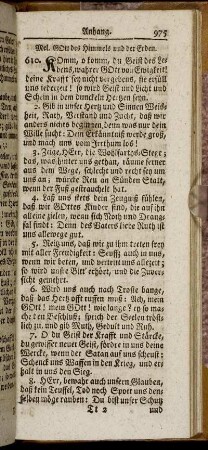 Anhang. 975
Mel. GOtt des Himmels und der Erden.
610. KOmm, o komm, du Geist des Le-
bens, wahrer GOtt von Ewigkeit!
deine Krafft sey nicht vergebens, sie erfüll
uns iederzeit! so wird Geist und Licht und
Schein in dem dunckeln Hertzen seyn.
2. Gib in unser Hertz und Sinnen Weis-
heit, Rath, Verstand und Zucht, daß wir
anders nichts beginnen, denn was nur dein
Wille sucht: Dein Erkänntniß werde groß,
und mach uns vom Irrthum los!
3. Zeige, HErr, die Wohlfarths-Stege;
das, was hinter uns gethan, räume ferner
aus dem Wege, schlecht und recht sey um
uns an: würcke Reu an Sünden Statt,
wenn der Fuß gestrauchelt hat.
4. Laß uns stets dein Zeugniß fühlen,
daß wir GOttes Kinder sind, die auf ihn
alleine zielen, wenn sich Noth und Drang-
sal findt: Denn des Vaters liebe Ruth ist
uns allewege gut.
5. Reitz uns, daß wir zu ihm treten frey
mit aller Freudigkeit: Seuffz auch in uns,
wenn wir beten, und vertritt uns allezeit:
so wird unsre Bitt erhört, und die Zuver-
sicht gemehrt.
6. Wird uns auch nach Troste bange,
daß das Hertz offt ruffen muß: Ach, mein
GOtt! mein GOtt! wie lange? ey so ma-
che den Beschluß; sprich der Seelen tröst-
lich zu, und gib Muth, Geduld und Ruh.
7. O du Geist der Krafft und Stärcke,
du gewisser neuer Geist, fördre in uns deine
Wercke, wenn der Satan auf uns scheust:
Schenck uns Waffen in den Krieg, und er-
halt in uns den Sieg.
8. HErr, bewahr auch unsern Glauben,
daß kein Teuffel, Tod noch Spott uns den-
selben möge rauben: Du bist unser Schutz
Tt 2 und